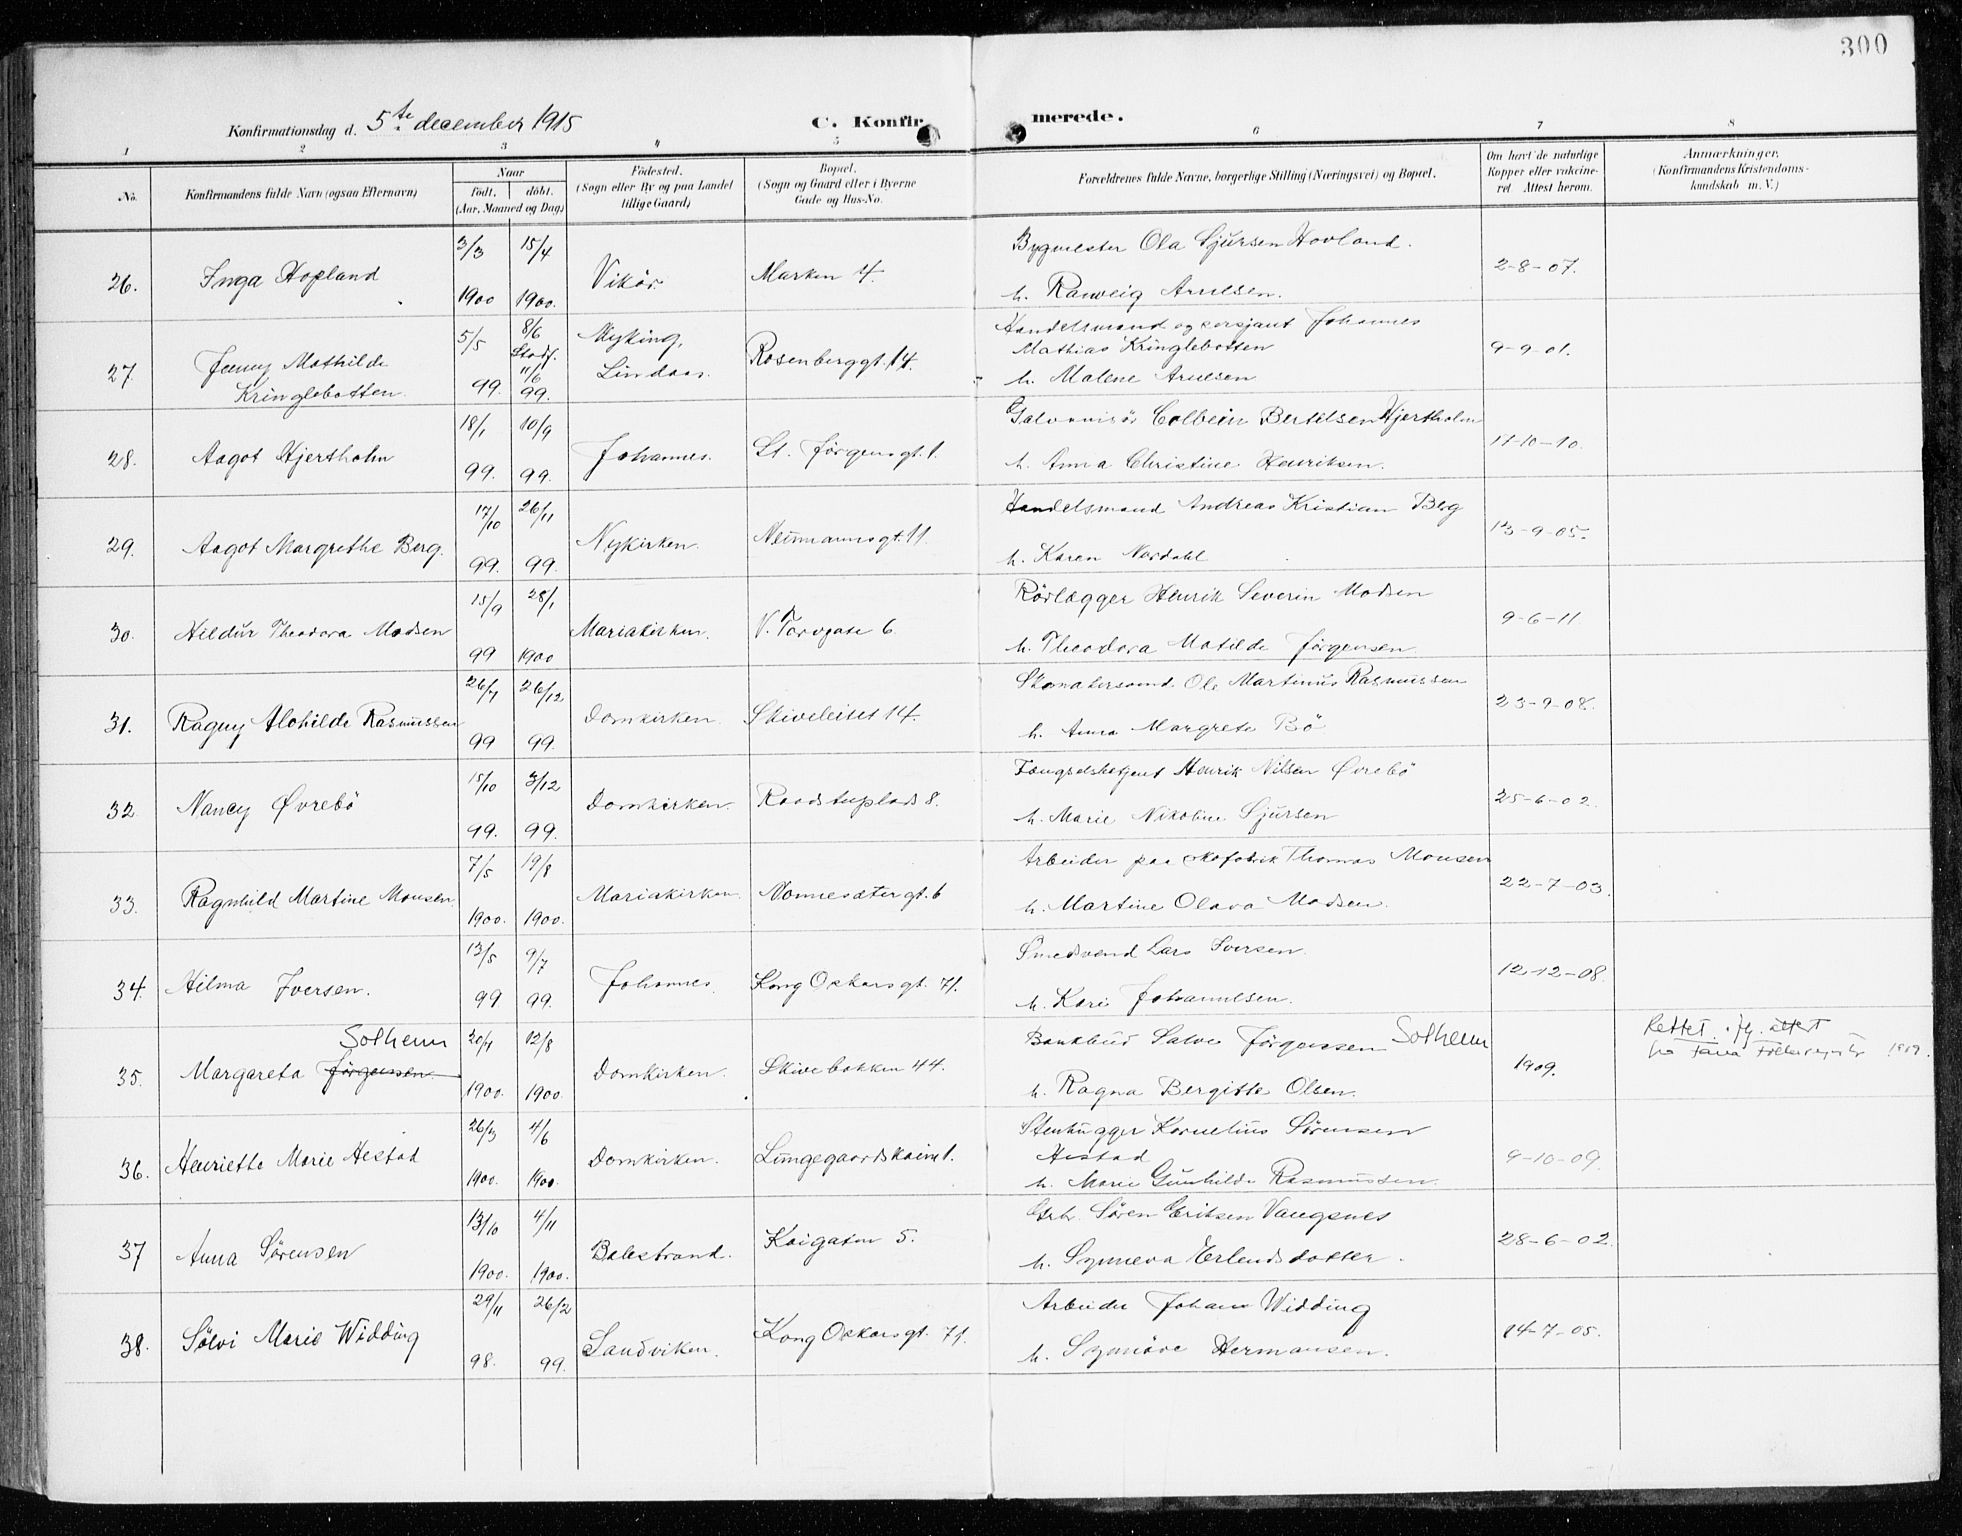 300
Konfirmationsdag d. 5te december 1915
C. Konfirmerede.
1 2 3 4 5 6 7 8
No.
Konfirmandens fulde Navn (ogsaa Efternavn)
Naar
født. døbt.
(Aar, Maaned og Dag)
Fødested.
(Sogn eller By og paa Landet
tillige Gaard)
Bopæl.
(Sogn og Gaard eller i Byerne
Gade og Hus-No.
Forældrenes fulde Navne, borgerlige Stilling (Næringsvei) og Bopæl.
Om havt de naturlige
Kopper eller vakcine-
ret. Attest herom.
Anmærkninger.
(Konfirmandens Kristendoms-
kundskab m. V.)
26. Inga Hopland 3/3 1900 15/4 1900. Vikör. Marken 4.
Bygmester Ola Sjursen Hovland.
h. Ranveig Arnesen. 2-8-07.
27. Jenny Mathilde
Kringlebotten. 5/5 99. 8/6
Stadf.
11/6
99. Myking,
Lindaas. Rosenberggt. 14.
Handelsmand og sersjant Johannes
Mathias Kringlebotten
h. Malene Arnesen 9-9-01.
28. Aagot Hjertholm 18/1 99. 10/9 99. Johannes. St. Jørgensgt. 1.
Galvanisör Colbein Bertelsen Hjertholm
h. Anna Christine Henriksen. 17-10-10.
29. Aagot Margrethe Berg. 17/10 99. 26/11 99. Nykirken. Neumannsgt. 11.
Handelsmand Andreas Kristian Berg
h. Karen Nordahl 13-9-05.
30. Hildur Theodora Madsen 15/9 99 28/1 1900 Mariakirken. V. Torvgate 6.
Rörlægger Henrik Severin Madsen
h. Theodora Matilde Jørgensen. 9-6-11
31. Ragny Alohilde Rasmussen 26/7 99 26/12 99. Domkirken. Skiveleitet 14.
Ole Martinus Rasmussen
h. Anna Margrete Bö 23-9-08.
32. Nancy Øvrebö 15/10 99. 3/12 99. Domkirken. Raadstuplads 8.
Fængselsbetjent Henrik Nilsen Øvrebö
h. Marie Nikoline Sjursen 25-6-02.
33. Ragnhild Martine Monsen. 7/5 1900. 19/8 1900. Mariakirken. Nonnesætergt. 6
Arbeider paa skofabrik Thomas Monsen
h. Martine Olava Madsen. 22-7-03.
34. Hilma Iversen. 13/5 99 9/7 99. Johannes. Kong Oskarsgt. 71.
Smedsvend Lars Iversen.
h. Kari Johannesen. 12-12-08.
Solheim
35. Margareta Jörgensen. 20/4 1900. 12/8 1900. Domkirken. Skivebakken 44.
Bankbud Salve Jörgensen Solheim
h. Ragna Bergitte Olsen. 1909.
Rettet jfg. attest
fra Fana Folkeregister
36. Henriette Marie Hestad 26/3 1900. 4/6 1900. Domkirken. Lungegaardskaien 1.
Stenhugger Kornelius Sörensen
Hestad
h. Marie Gunhilde Rasmussen. 9-10-09.
37 Anna Sörensen 13/10 1900. 4/11 1900. Balestrand. Kaigaten 5.
Grh. Sören Eriksen Vangsnes
h. Synneva Erlendsdotter. 28-6-02.
38. Sölvi Marie Widding 29/11 98. 26/2 99. Sandviken. Kong Oskarsgt. 71.
Arbeider Johan Widding
h. Synnöve Hermansen. 14-7-05.